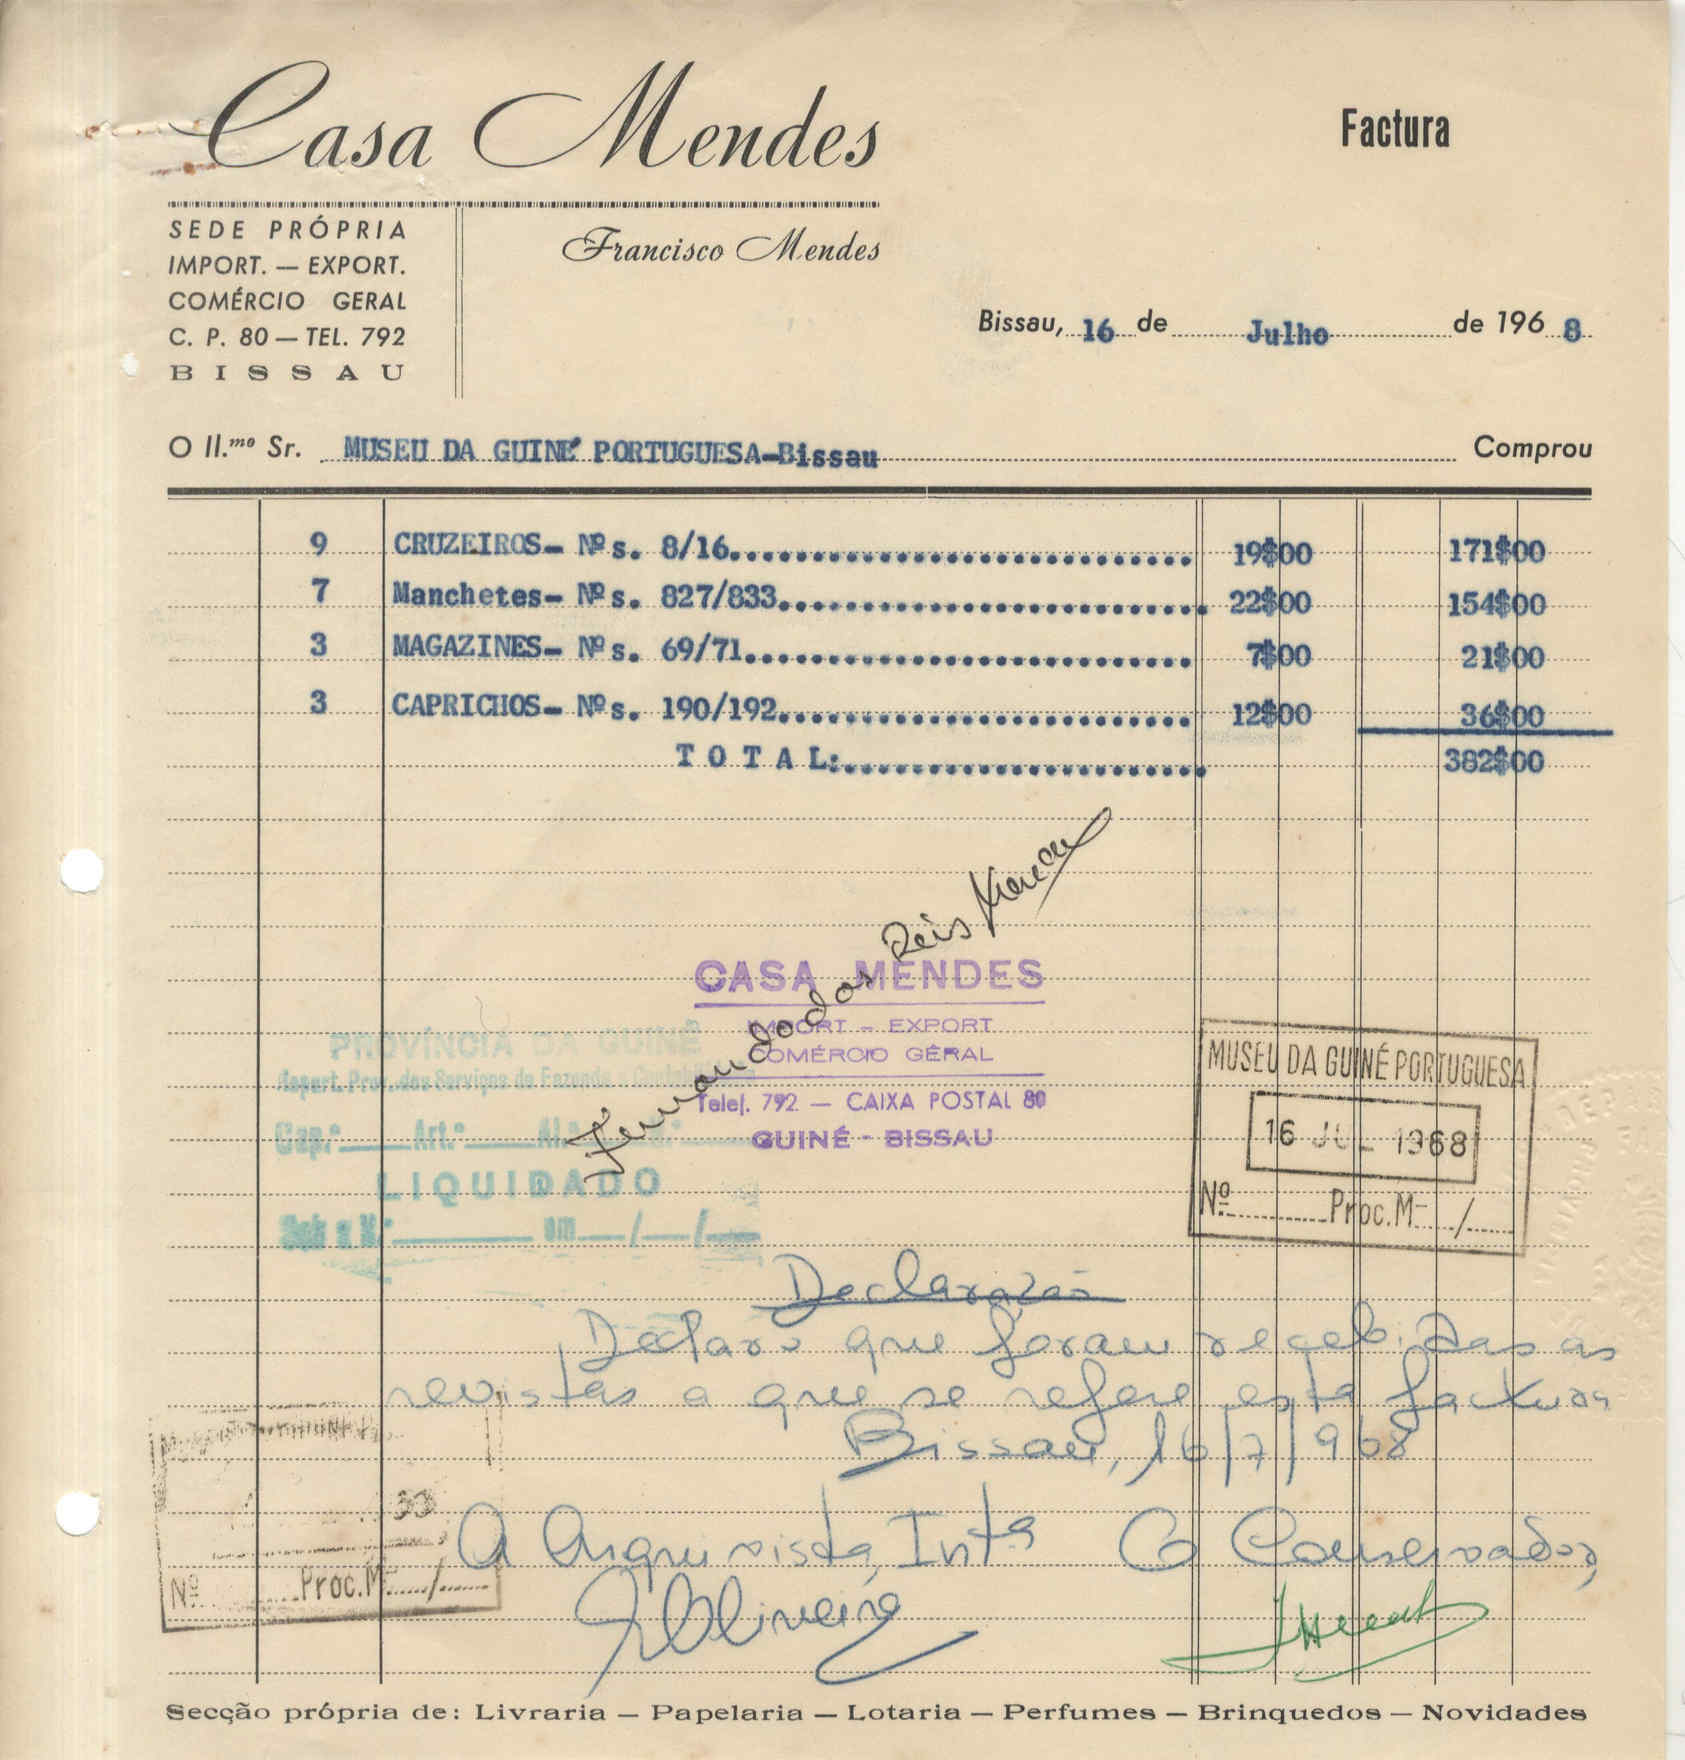 Casa Mendes
Factura
SEDE PRÓPRIA
IMPORT. — EXPORT.
COMÉRCIO GERAL
C. P. 80 — TEL. 792
BISSAU
Francisco Mendes
Bissau, 16 de Julho de 1968
O Il.mo Sr. MUSEU DA GUINÉ PORTUGUESA-Bissau Comprou
9 CRUZEIROS- Nºs. 8/16 19$00 171$00
7 Manchetes- Nºs. 827/833 22$00 154$00
3 MAGAZINES- Nºs. 69/71 7$00 21$00
3 CAPRICHOS- Nºs. 190/192 12$00 36$00
TOTAL: 382$00
Fernando dos Reis
CASA MENDES
IMPORT — EXPORT
COMÉRCIO GERAL
Telef. 792 — CAIXA POSTAL 80
GUINÉ - BISSAU
PROVÍNCIA DA GUINÉ
Repart. Prov. dos Serviços de Fazenda e
Cap.º Art.º
LIQUIDADO
em / /
MUSEU DA GUINÉ PORTUGUESA
16 JUL 1968
Nº Proc. M /
Declaração
Declaro que foram recebidas as
revistas a que se refere esta factura
Bissau, 16/7/968
A Arquivista, Intª O Conservador,
Oliveira
Nº Proc. M /
Secção própria de: Livraria — Papelaria — Lotaria — Perfumes — Brinquedos — Novidades